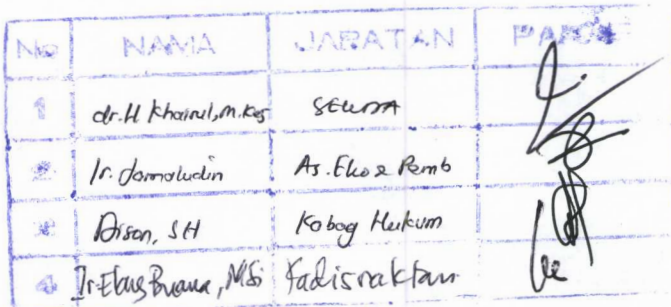 No NAMA JABATAN PARAF
1 dr. H Khairul, M.Kes SEKDA
2 Ir. Jamaludin As. Eko & Pemb
3 Disan, SH Kabag Hukum
4 Ir. Elang Buana, M.Si Kadisnaktan